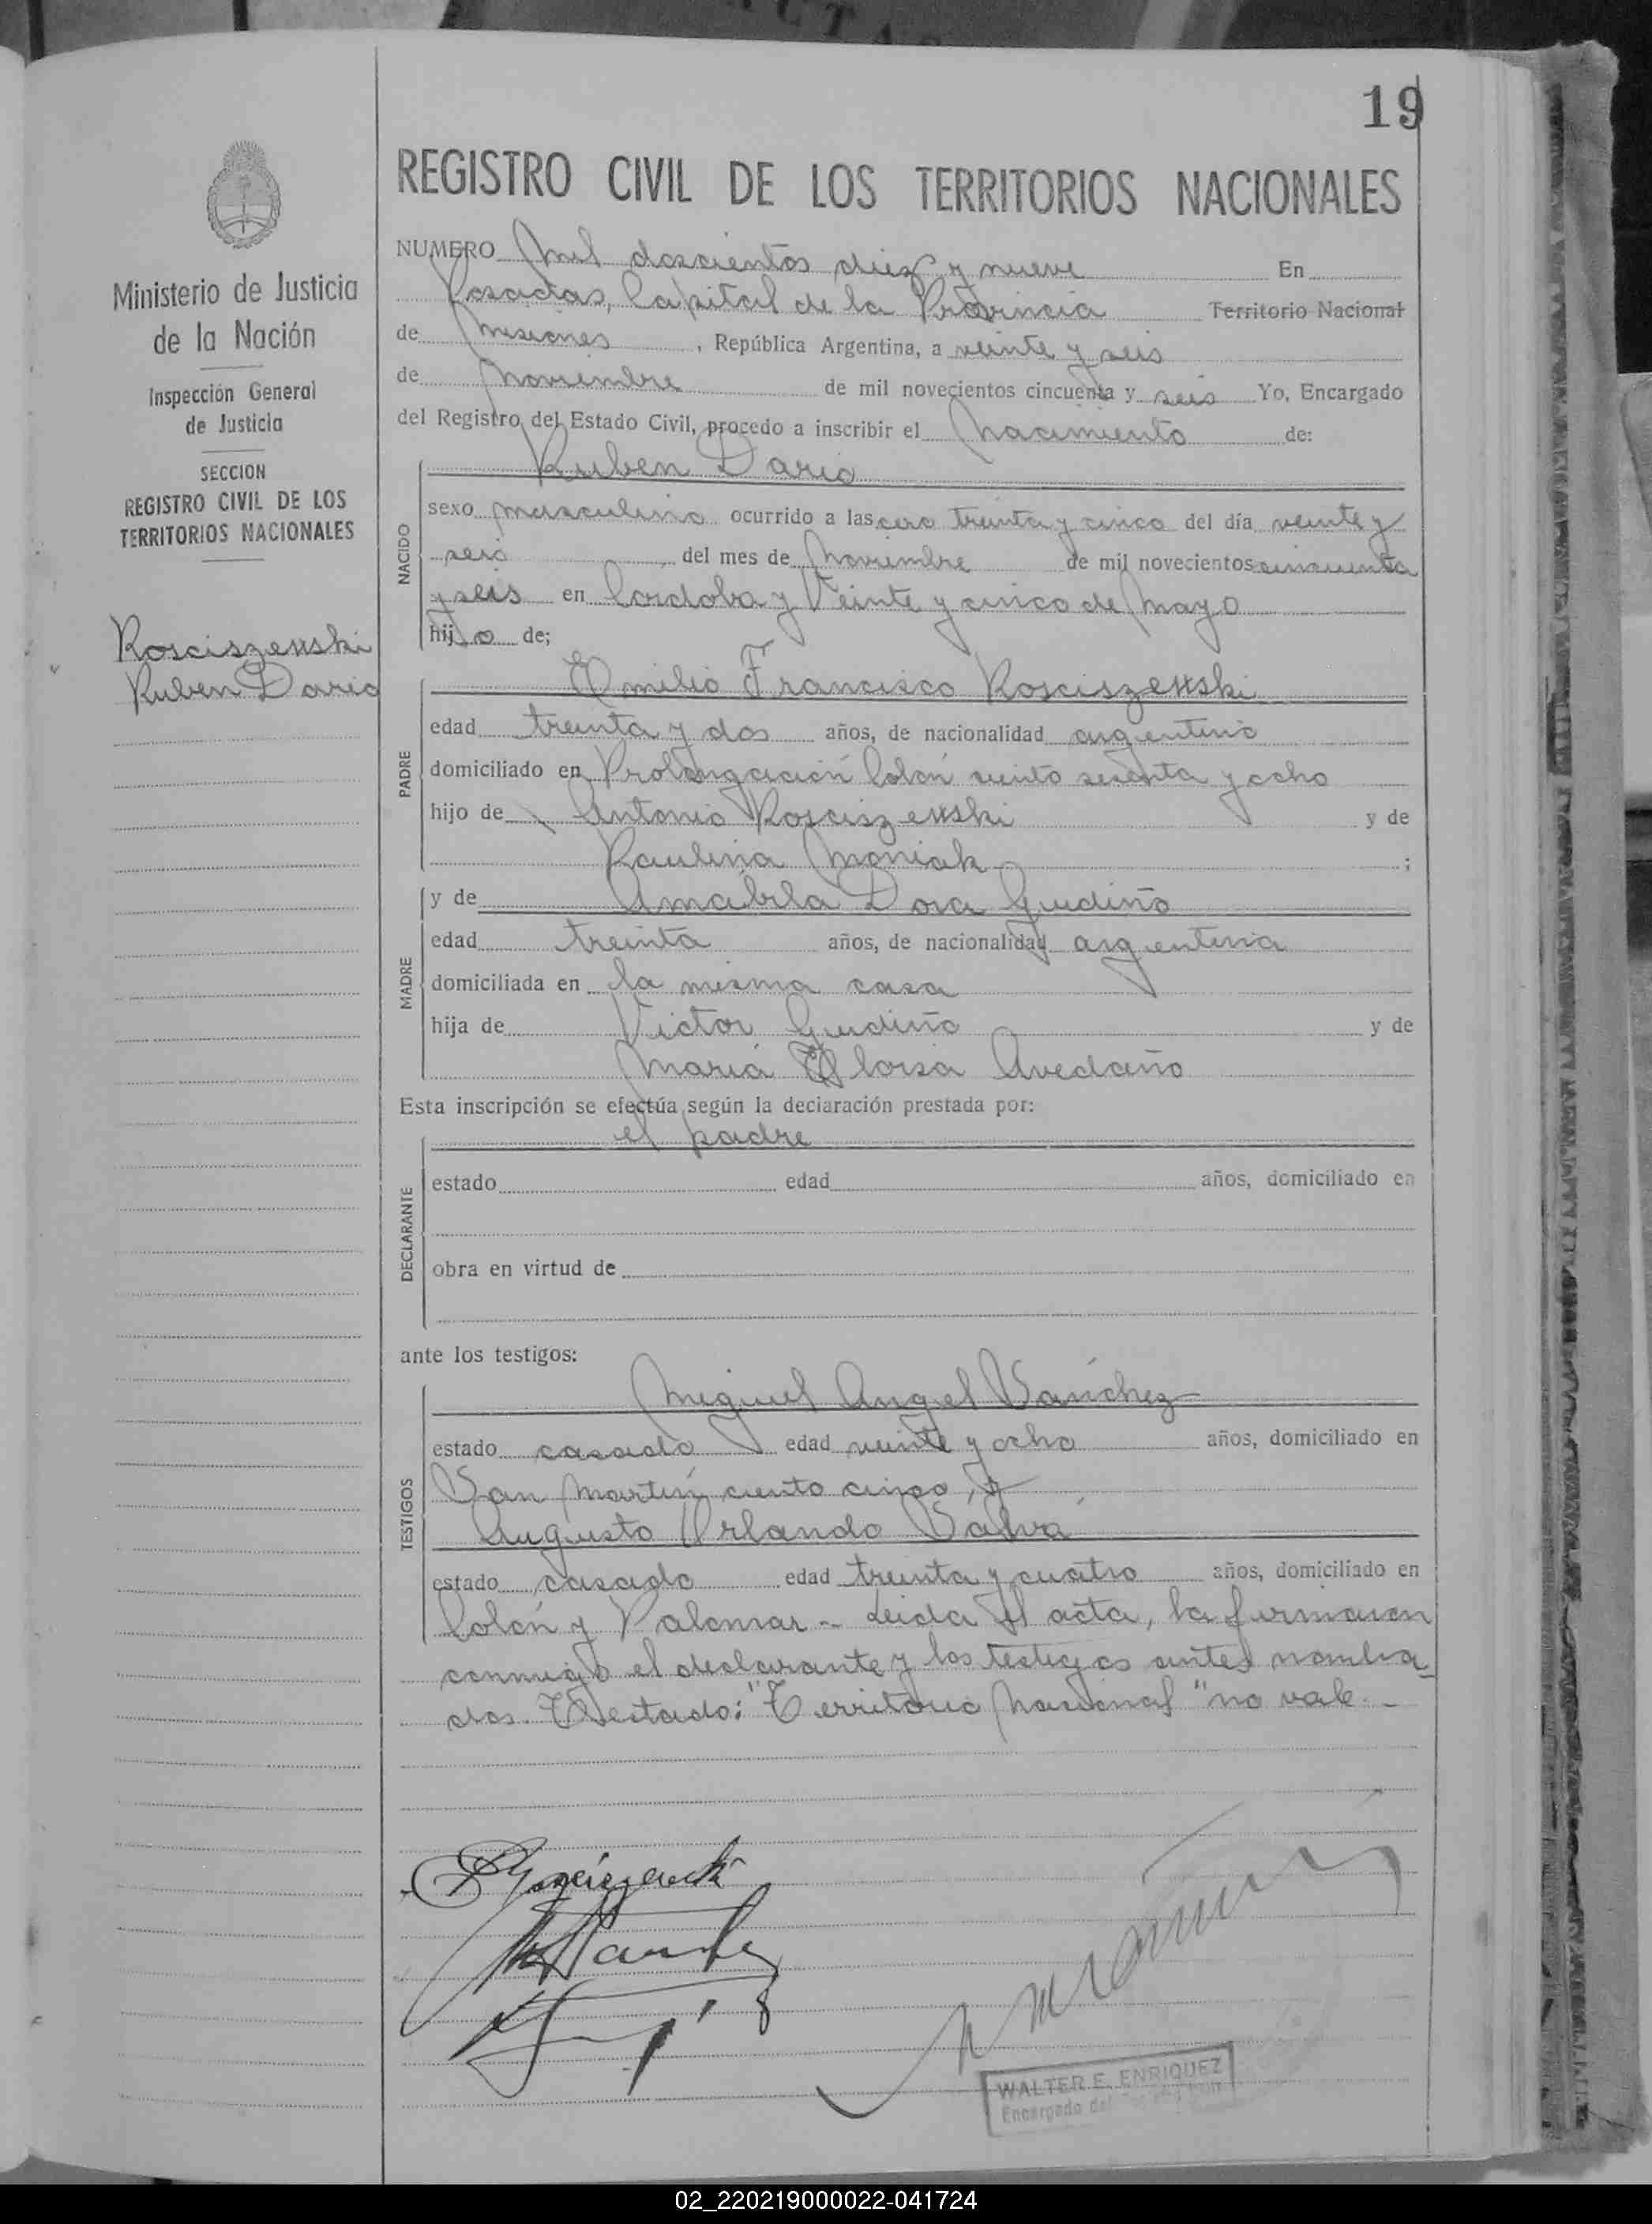 19
REGISTRO CIVIL DE LOS TERRITORIOS NACIONALES
Ministerio de Justicia
de la Nación
Inspección General
de Justicia
SECCION
REGISTRO CIVIL DE LOS
TERRITORIOS NACIONALES
Rosciszewski
Ruben Dario
NUMERO Mil doscientos diez y nueve En
Posadas, Capital de la Provincia Territorio Nacional
de Misiones, República Argentina, a veinte y seis
de Noviembre de mil novecientos cincuenta y seis Yo, Encargado
del Registro del Estado Civil, procedo a inscribir el Nacimiento de:
Ruben Dario
NACIDO
sexo masculino ocurrido a las cero treinta y cinco del día veinte y
seis del mes de Noviembre de mil novecientos cincuenta
y seis en Cordoba y Veinte y cinco de Mayo
hijo de;
PADRE
Emilio Francisco Rosciszewski
edad treinta y dos años, de nacionalidad argentino
domiciliado en Prolongación Colón ciento sesenta y ocho
hijo de Antonio Rosciszewski y de
Paulina Moniak;
MADRE
y de Amabila Dora Gudiño
edad treinta años, de nacionalidad argentina
domiciliada en la misma casa
hija de Victor Gudiño y de
María Eloisa Avedaño
Esta inscripción se efectúa según la declaración prestada por:
el padre
DECLARANTE
estado edad años, domiciliado en
obra en virtud de
ante los testigos:
TESTIGOS
Miguel Angel Sánchez
estado casado edad veinte y ocho años, domiciliado en
San Martín ciento cinco, y
Augusto Orlando Salvá
estado casado edad treinta y cuatro años, domiciliado en
Colón y Palomar - Leida el acta, la firmaron
conmigo el declarante y los testigos antes nombra-
dos. Testado: "Territorio Nacional" no vale. -
WALTER E. ENRIQUEZ
Encargado del
02_220219000022-041724